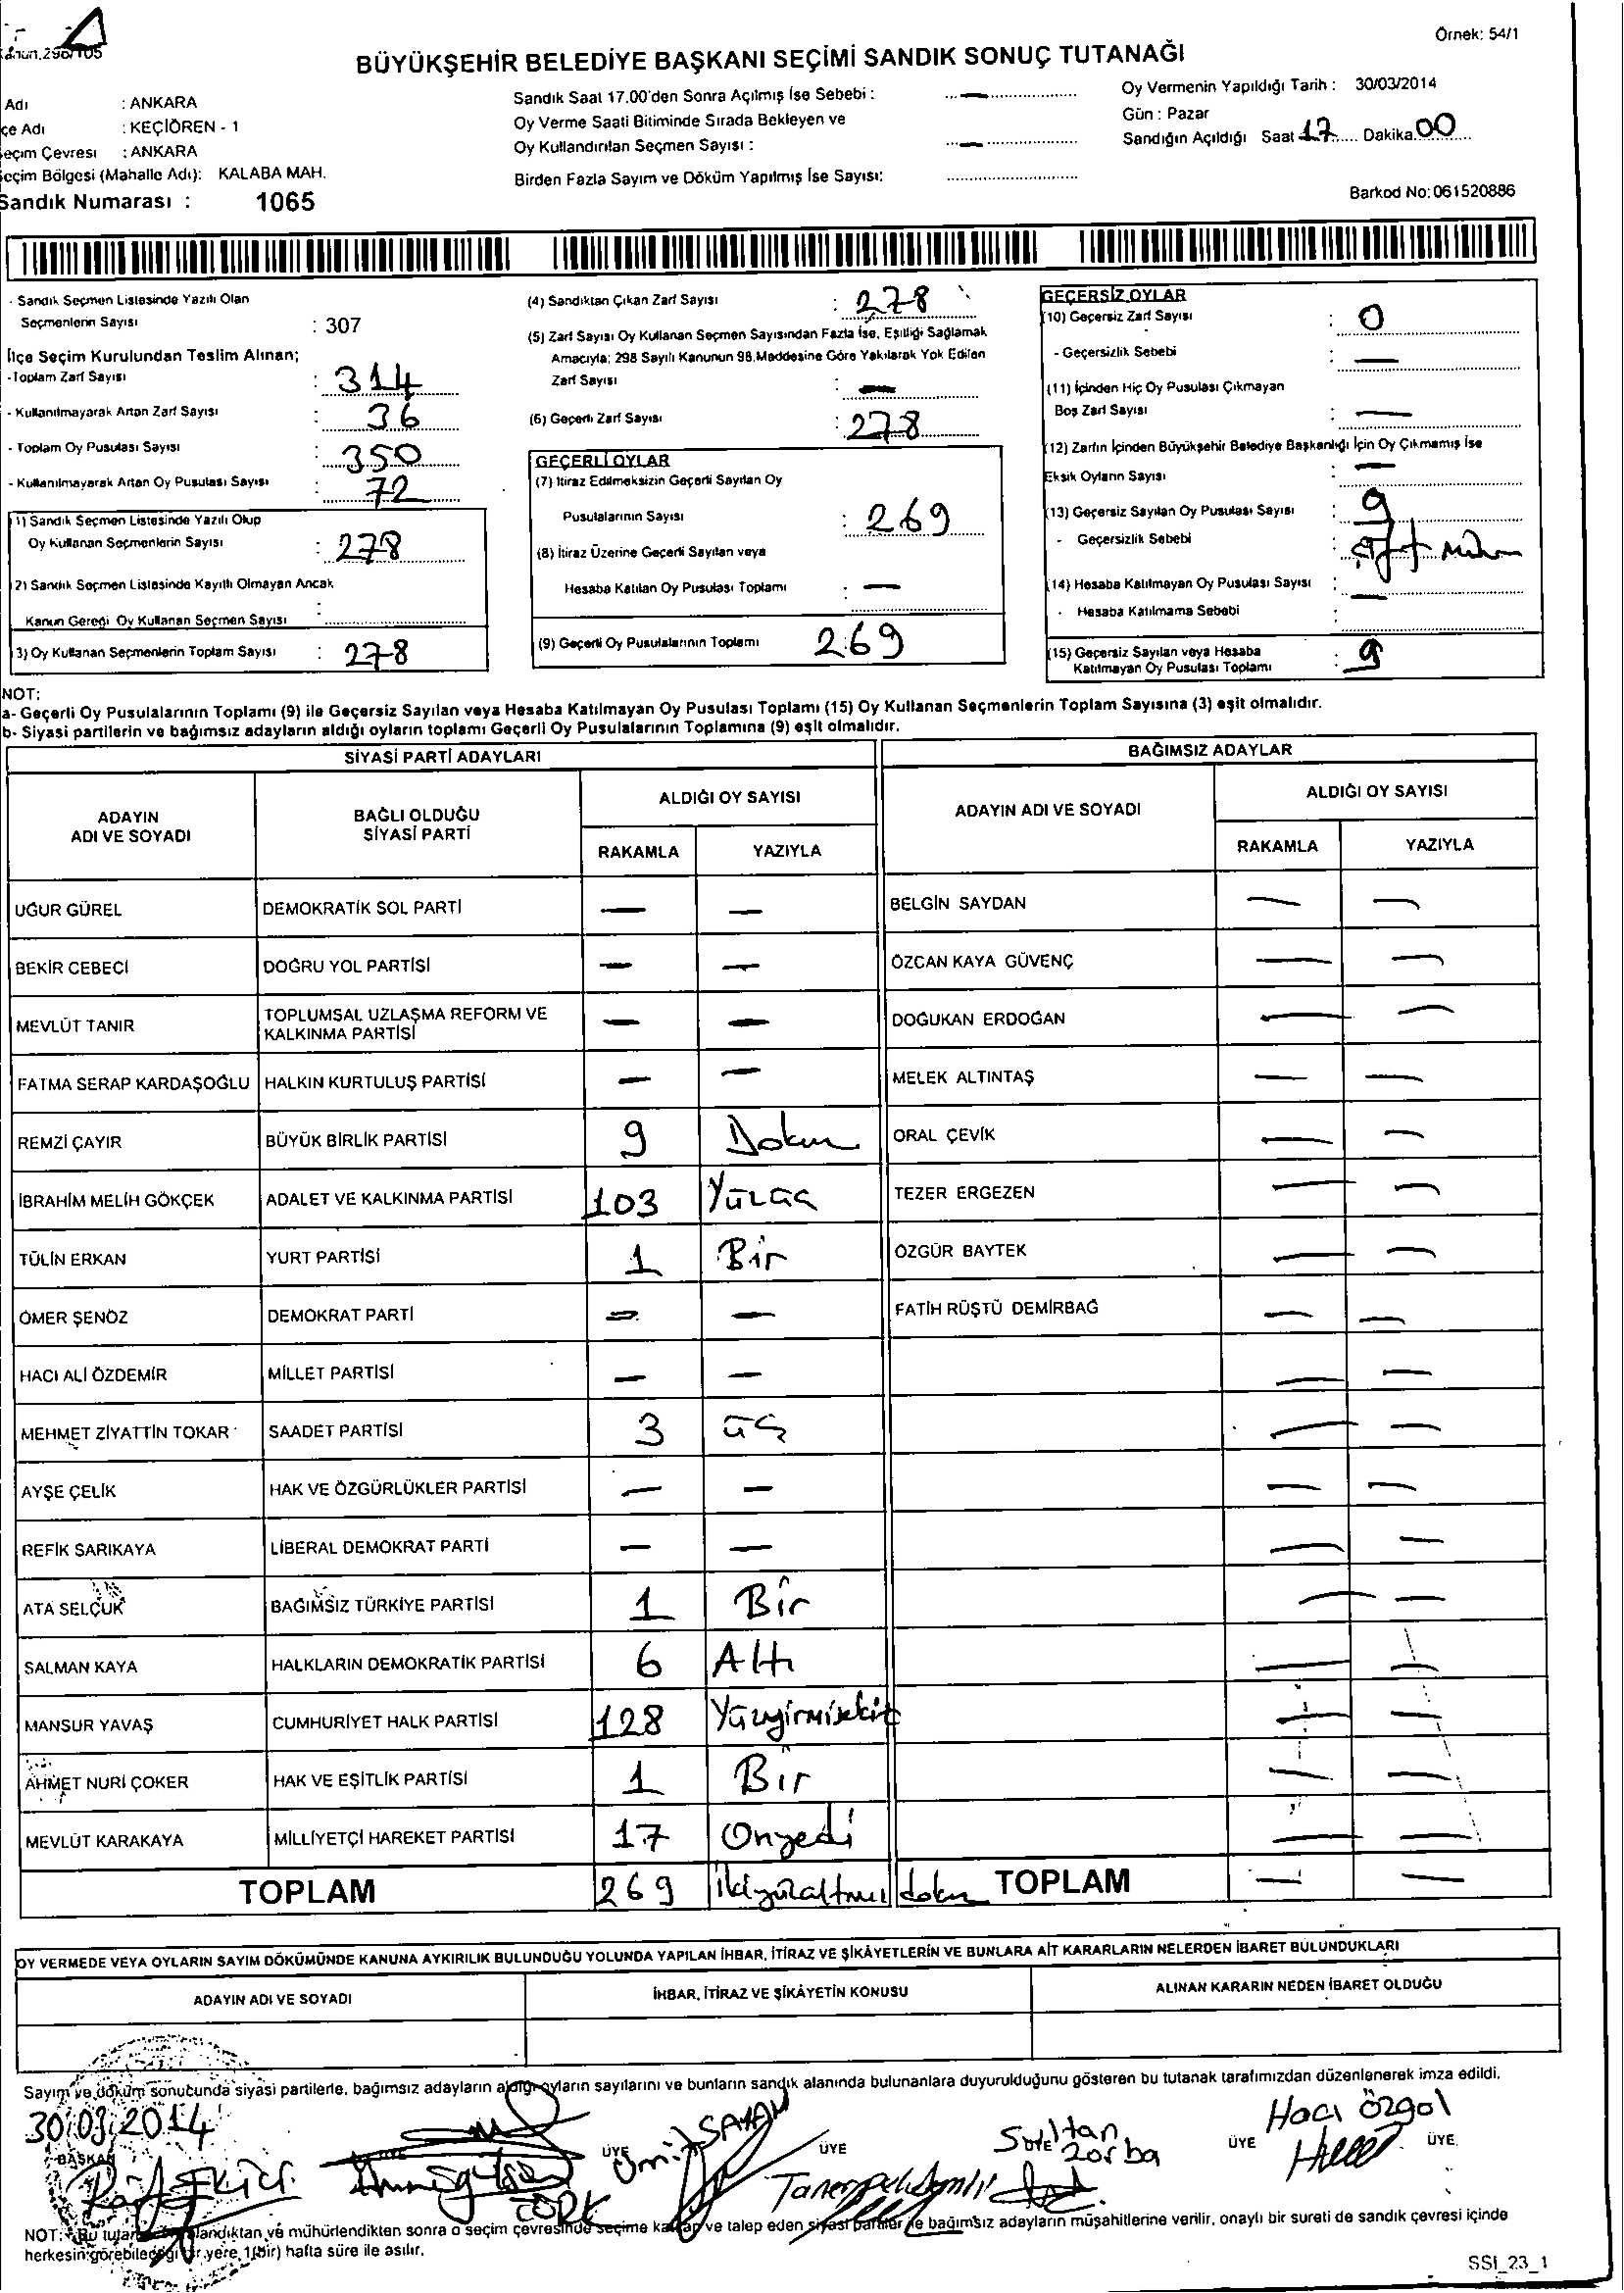 Örnek: 54/1
BÜYÜKŞEHİR BELEDİYE BAŞKANI SEÇİMİ SANDIK SONUÇ TUTANAĞI
Adı : ANKARA
çe Adı : KEÇİÖREN - 1
eçim Çevresi : ANKARA
eçim Bölgesi (Mahalle Adı): KALABA MAH.
Sandık Numarası : 1065
Sandık Saat 17.00'den Sonra Açılmış İse Sebebi :
Oy Verme Saati Bitiminde Sırada Bekleyen ve
Oy Kullandırılan Seçmen Sayısı :
Birden Fazla Sayım ve Döküm Yapılmış İse Sayısı:
Oy Vermenin Yapıldığı Tarih : 30/03/2014
Gün : Pazar
Sandığın Açıldığı Saat 17 Dakika 00
Barkod No: 061520886
- Sandık Seçmen Listesinde Yazılı Olan
Seçmenlerin Sayısı : 307
İlçe Seçim Kurulundan Teslim Alınan;
-Toplam Zarf Sayısı : 314
- Kullanılmayarak Artan Zarf Sayısı : 36
- Toplam Oy Pusulası Sayısı : 350
- Kullanılmayarak Artan Oy Pusulası Sayısı : 72
1) Sandık Seçmen Listesinde Yazılı Olup
Oy Kullanan Seçmenlerin Sayısı : 278
2) Sandık Seçmen Listesinde Kayıtlı Olmayan Ancak
Kanun Gereği Oy Kullanan Seçmen Sayısı :
3) Oy Kullanan Seçmenlerin Toplam Sayısı : 278
(4) Sandıktan Çıkan Zarf Sayısı : 278
(5) Zarf Sayısı Oy Kullanan Seçmen Sayısından Fazla İse, Eşitliği Sağlamak
Amacıyla; 298 Sayılı Kanunun 98.Maddesine Göre Yakılarak Yok Edilen
Zarf Sayısı : —
(6) Geçerli Zarf Sayısı : 278
GEÇERLİ OYLAR
(7) İtiraz Edilmeksizin Geçerli Sayılan Oy
Pusulalarının Sayısı : 269
(8) İtiraz Üzerine Geçerli Sayılan veya
Hesaba Katılan Oy Pusulası Toplamı : —
(9) Geçerli Oy Pusulalarının Toplamı 269
GEÇERSİZ OYLAR
(10) Geçersiz Zarf Sayısı : 0
- Geçersizlik Sebebi : —
(11) İçinden Hiç Oy Pusulası Çıkmayan
Boş Zarf Sayısı : —
(12) Zarfın İçinden Büyükşehir Belediye Başkanlığı İçin Oy Çıkmamış İse
Eksik Oyların Sayısı : —
(13) Geçersiz Sayılan Oy Pusulası Sayısı : 9
- Geçersizlik Sebebi :
(14) Hesaba Katılmayan Oy Pusulası Sayısı : —
- Hesaba Katılmama Sebebi :
(15) Geçersiz Sayılan veya Hesaba
Katılmayan Oy Pusulası Toplamı : 9
NOT:
a- Geçerli Oy Pusulalarının Toplamı (9) ile Geçersiz Sayılan veya Hesaba Katılmayan Oy Pusulası Toplamı (15) Oy Kullanan Seçmenlerin Toplam Sayısına (3) eşit olmalıdır.
b- Siyasi partilerin ve bağımsız adayların aldığı oyların toplamı Geçerli Oy Pusulalarının Toplamına (9) eşit olmalıdır.
SİYASİ PARTİ ADAYLARI BAĞIMSIZ ADAYLAR
ADAYIN ADI VE SOYADI BAĞLI OLDUĞU SİYASİ PARTİ ALDIĞI OY SAYISI ADAYIN ADI VE SOYADI ALDIĞI OY SAYISI
RAKAMLA YAZIYLA RAKAMLA YAZIYLA
UĞUR GÜREL DEMOKRATİK SOL PARTİ — — BELGİN SAYDAN — —
BEKİR CEBECİ DOĞRU YOL PARTİSİ — — ÖZCAN KAYA GÜVENÇ — —
MEVLÜT TANIR TOPLUMSAL UZLAŞMA REFORM VE KALKINMA PARTİSİ — — DOĞUKAN ERDOĞAN — —
FATMA SERAP KARDAŞOĞLU HALKIN KURTULUŞ PARTİSİ — — MELEK ALTINTAŞ — —
REMZİ ÇAYIR BÜYÜK BİRLİK PARTİSİ 9 Dokuz ORAL ÇEVİK — —
İBRAHİM MELİH GÖKÇEK ADALET VE KALKINMA PARTİSİ 103 Yüzüç TEZER ERGEZEN — —
TÜLİN ERKAN YURT PARTİSİ 1 Bir ÖZGÜR BAYTEK — —
ÖMER ŞENÖZ DEMOKRAT PARTİ — — FATİH RÜŞTÜ DEMİRBAĞ — —
HACI ALİ ÖZDEMİR MİLLET PARTİSİ — — — —
MEHMET ZİYATTİN TOKAR SAADET PARTİSİ 3 üç — —
AYŞE ÇELİK HAK VE ÖZGÜRLÜKLER PARTİSİ — — — —
REFİK SARIKAYA LİBERAL DEMOKRAT PARTİ — — — —
ATA SELÇUK BAĞIMSIZ TÜRKİYE PARTİSİ 1 Bir — —
SALMAN KAYA HALKLARIN DEMOKRATİK PARTİSİ 6 Altı — —
MANSUR YAVAŞ CUMHURİYET HALK PARTİSİ 128 Yüzyirmisekiz — —
AHMET NURİ ÇOKER HAK VE EŞİTLİK PARTİSİ 1 Bir — —
MEVLÜT KARAKAYA MİLLİYETÇİ HAREKET PARTİSİ 17 Onyedi — —
TOPLAM 269 ikiyüzaltmış dokuz TOPLAM — —
OY VERMEDE VEYA OYLARIN SAYIM DÖKÜMÜNDE KANUNA AYKIRILIK BULUNDUĞU YOLUNDA YAPILAN İHBAR, İTİRAZ VE ŞİKÂYETLERİN VE BUNLARA AİT KARARLARIN NELERDEN İBARET BULUNDUKLARI
ADAYIN ADI VE SOYADI İHBAR, İTİRAZ VE ŞİKÂYETİN KONUSU ALINAN KARARIN NEDEN İBARET OLDUĞU
Sayım ve döküm sonucunda siyasi partilerle, bağımsız adayların aldığı oyların sayılarını ve bunların sandık alanında bulunanlara duyurulduğunu gösteren bu tutanak tarafımızdan düzenlenerek imza edildi.
30.03.2014 Hacı Özgol
BAŞKAN ÜYE Ümit SAYAN ÜYE Sultan Zorba ÜYE ÜYE
NOT: Bu tutanak landıktan ve mühürlendikten sonra o seçim çevresinde seçime ve talep eden siyasi partiler ile bağımsız adayların müşahitlerine verilir, onaylı bir sureti de sandık çevresi içinde
herkesin görebileceği bir yere, 1(bir) hafta süre ile asılır.
SSI_23_1